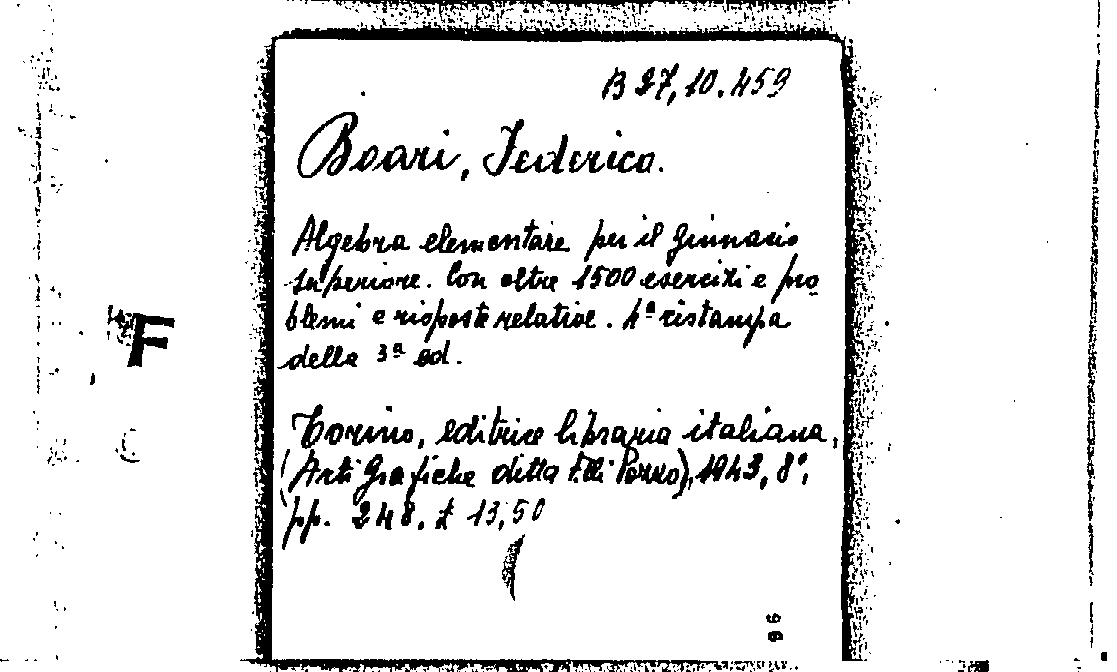 B 27, 10. 459
Boari, Federico.
Algebra elementare per il ginnasio
superiore. Con oltre 1500 esercizi e pro-
blemi e risposte relative. 4ª ristampa
della 3ª ed.
F
Torino, editrice libraria italiana,
(Arti Grafiche ditta F.lli Pozzo), 1943, 8°,
pp. 248. £ 13,50
96